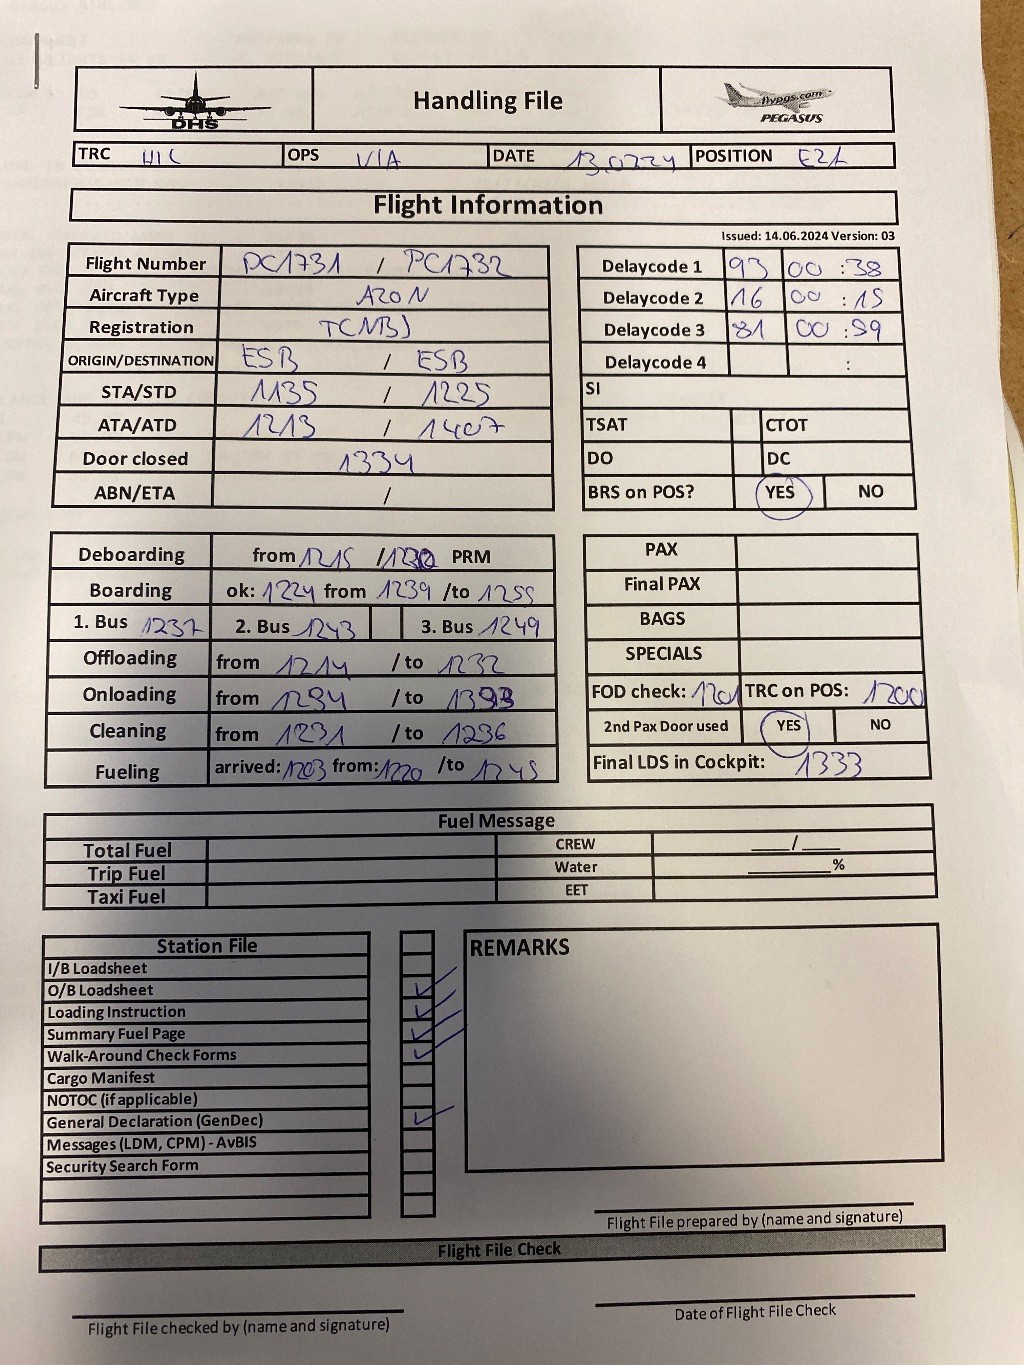 DHS Handling File flypgs.com PEGASUS
TRC HIL OPS VIA DATE 13.0724 POSITION E21
Flight Information
Issued: 14.06.2024 Version: 03
Flight Number PC1731 / PC1732
Aircraft Type A20N
Registration TCNBJ
ORIGIN/DESTINATION ESB / ESB
STA/STD 1135 / 1225
ATA/ATD 1213 / 1407
Door closed 1334
ABN/ETA /
Delaycode 1 93 00 :38
Delaycode 2 16 00 :15
Delaycode 3 81 00 :59
Delaycode 4 :
SI
TSAT CTOT
DO DC
BRS on POS? YES NO
Deboarding from 1215 / PRM
Boarding ok: 1224 from 1239 /to 1255
1. Bus 1237 2. Bus 1243 3. Bus 1249
Offloading from 1214 /to 1232
Onloading from 1234 /to
Cleaning from 1231 /to 1236
Fueling arrived: 1203 from: 1220 /to 1245
PAX
Final PAX
BAGS
SPECIALS
FOD check: 1201 TRC on POS: 1200
2nd Pax Door used YES NO
Final LDS in Cockpit: 1333
Fuel Message
Total Fuel CREW ___/___
Trip Fuel Water ______%
Taxi Fuel EET
Station File
I/B Loadsheet
O/B Loadsheet
Loading Instruction
Summary Fuel Page
Walk-Around Check Forms
Cargo Manifest
NOTOC (if applicable)
General Declaration (GenDec)
Messages (LDM, CPM) - AvBIS
Security Search Form
REMARKS
Flight File prepared by (name and signature)
Flight File Check
Flight File checked by (name and signature)
Date of Flight File Check